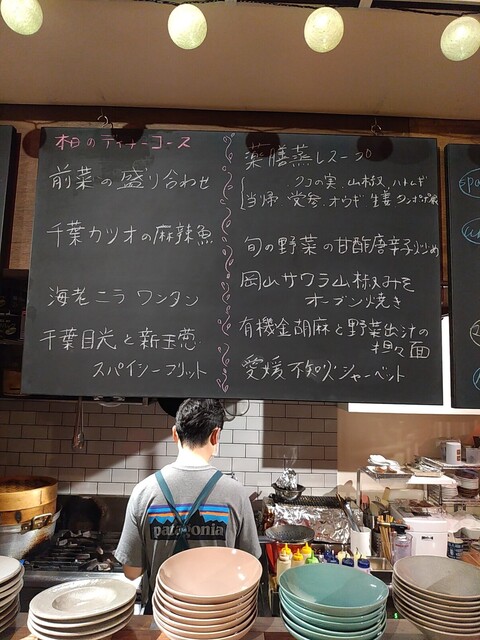 本日のディナーコース
前菜の盛り合わせ
千葉カツオの麻辣魚
海老ニラワンタン
千葉目光と新玉葱
スパイシーフリット
薬膳蒸しスープ
クコの実、山椒、ハトムギ
当帰 党参、オウギ 生姜 タンポポ根
旬の野菜の甘酢唐辛子炒め
岡山サワラ山椒みそ
オーブン焼き
有機金胡麻と野菜出汁の
担々面
愛媛不知火シャーベット
patagonia